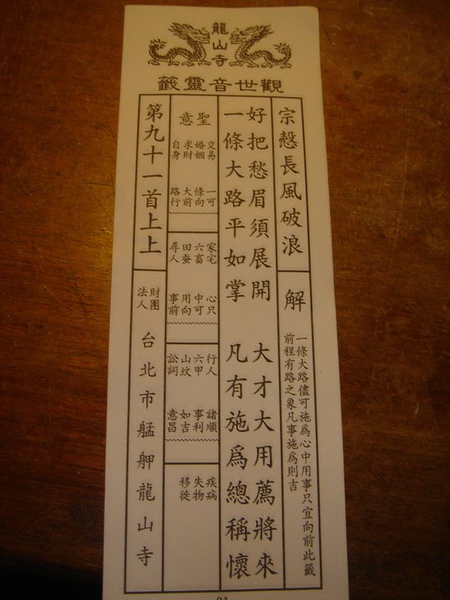 龍山寺
觀世音靈籤
宗慤長風破浪
解
一條大路儘可施爲心中用事只宜向前此籤
前程有路之象凡事施爲則吉
好把愁眉須展開 大才大用薦將來
一條大路平如掌 凡有施爲總稱懷
聖意
交易
婚姻
求財
自身
一可
條向
大前
路行
家宅
六畜
田蚕
尋人
心只
中可
用向
事前
行人
六甲
山坟
訟詞
諸順
事利
如吉
意昌
疾病
失物
移徙
第九十一首上上
財團
法人
台北市艋舺龍山寺